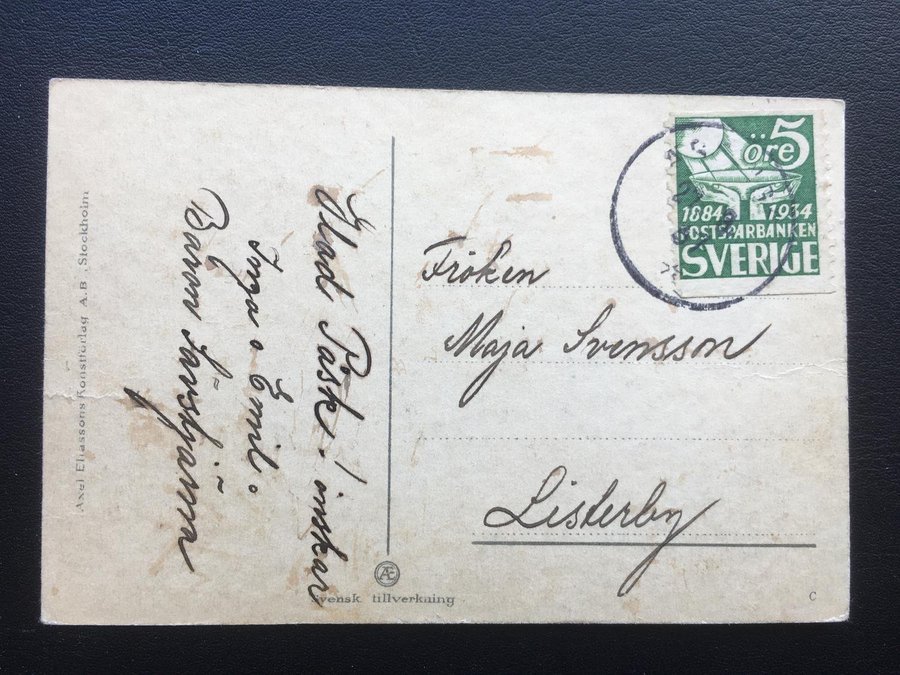 Axel Eliassons Konstförlag A.B. Stockholm
Glad Påsk! önskar
Inga o Emil o
Barn
öre 5
1884 1934
POSTSPARBANKEN
SVERIGE
Fröken
Maja Svensson
Listerby
Æ
Svensk tillverkning
C